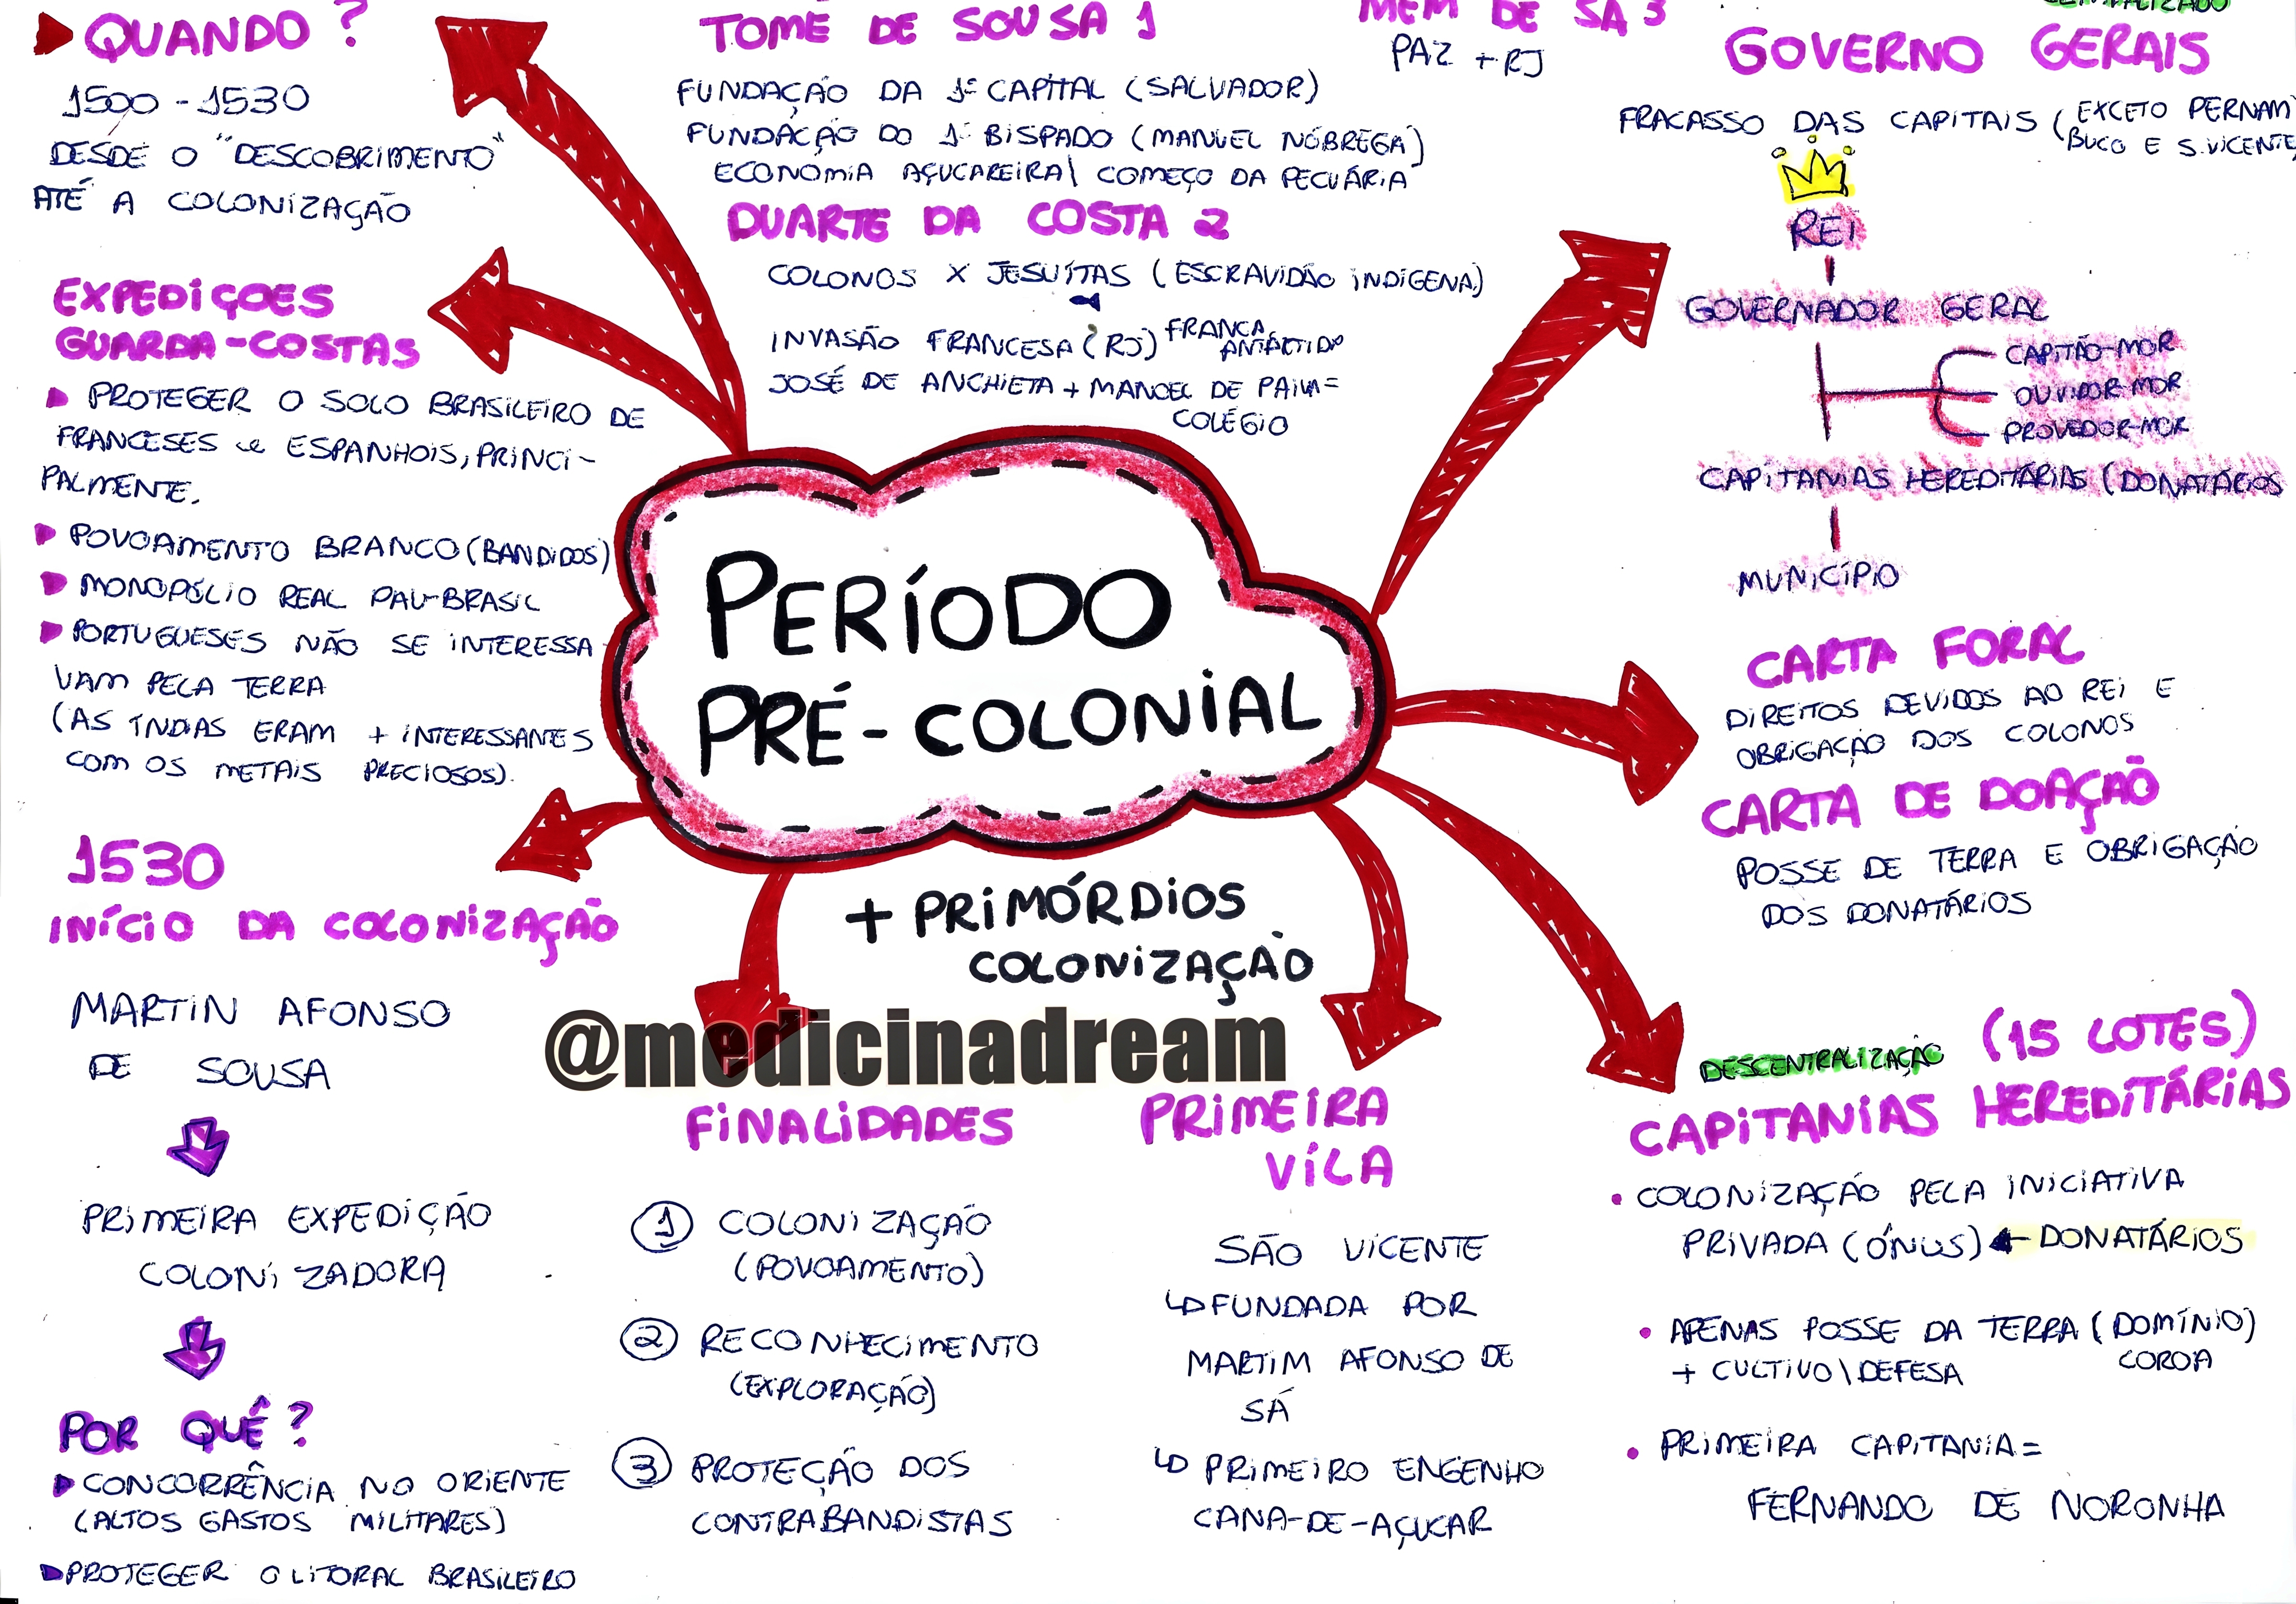 QUANDO ?
1500 - 1530
DESDE O "DESCOBRIMENTO"
ATÉ A COLONIZAÇÃO
EXPEDIÇOES
GUARDA-COSTAS
PROTEGER O SOLO BRASILEIRO DE
FRANCESES e ESPANHOIS, PRINCI-
PALMENTE.
POVOAMENTO BRANCO (BANDIDOS)
MONOPÓLIO REAL PAU-BRASIL
PORTUGUESES NÃO SE INTERESSA
VAM PELA TERRA
(AS ÍNDIAS ERAM + INTERESSANTES
COM OS METAIS PRECIOSOS).
1530
INÍCIO DA COLONIZAÇÃO
MARTIN AFONSO
DE SOUSA
PRIMEIRA EXPEDIÇÃO
COLONIZADORA
POR QUÊ ?
CONCORRÊNCIA NO ORIENTE
(ALTOS GASTOS MILITARES)
PROTEGER O LITORAL BRASILEIRO
TOMÉ DE SOUSA 1
FUNDAÇÃO DA 1ª CAPITAL (SALVADOR)
FUNDAÇÃO DO 1º BISPADO (MANUEL NÓBREGA)
ECONOMIA AÇUCAREIRA\ COMEÇO DA PECUÁRIA
DUARTE DA COSTA 2
COLONOS X JESUÍTAS (ESCRAVIDÃO INDÍGENA)
INVASÃO FRANCESA (RJ) FRANCA
JOSÉ DE ANCHIETA + MANOEL DE PAIVA =
COLÉGIO
MEM DE SÁ 3
PAZ + RJ
PERÍODO
PRÉ-COLONIAL
+ PRIMÓRDIOS
COLONIZAÇÃO
@medicinadream
FINALIDADES
1 COLONIZAÇÃO
(POVOAMENTO)
2 RECONHECIMENTO
(EXPLORAÇÃO)
3 PROTEÇÃO DOS
CONTRABANDISTAS
PRIMEIRA
VILA
SÃO VICENTE
FUNDADA POR
MARTIM AFONSO DE
SÁ
PRIMEIRO ENGENHO
CANA-DE-AÇUCAR
GOVERNO GERAIS
FRACASSO DAS CAPITAIS (EXCETO PERNAM
BUCO E S.VICENTE
REI
GOVERNADOR GERAL
CAPITÃO-MOR
OUVIDOR-MOR
PROVEDOR-MOR
CAPITANIAS HEREDITÁRIAS (DONATÁRIOS
MUNICÍPIO
CARTA FORAL
DIREITOS DEVIDOS AO REI E
OBRIGAÇÃO DOS COLONOS
CARTA DE DOAÇÃO
POSSE DE TERRA E OBRIGAÇÃO
DOS DONATÁRIOS
DESCENTRALIZAÇÃO (15 LOTES)
CAPITANIAS HEREDITÁRIAS
COLONIZAÇÃO PELA INICIATIVA
PRIVADA (ÔNUS) ← DONATÁRIOS
APENAS POSSE DA TERRA (DOMÍNIO)
+ CULTIVO\DEFESA COROA
PRIMEIRA CAPITANIA =
FERNANDO DE NORONHA